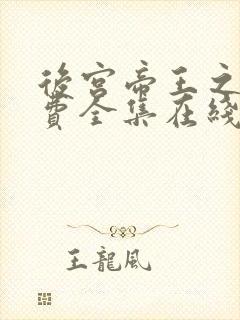 後宮帝王之
費全集在綫
王龍風